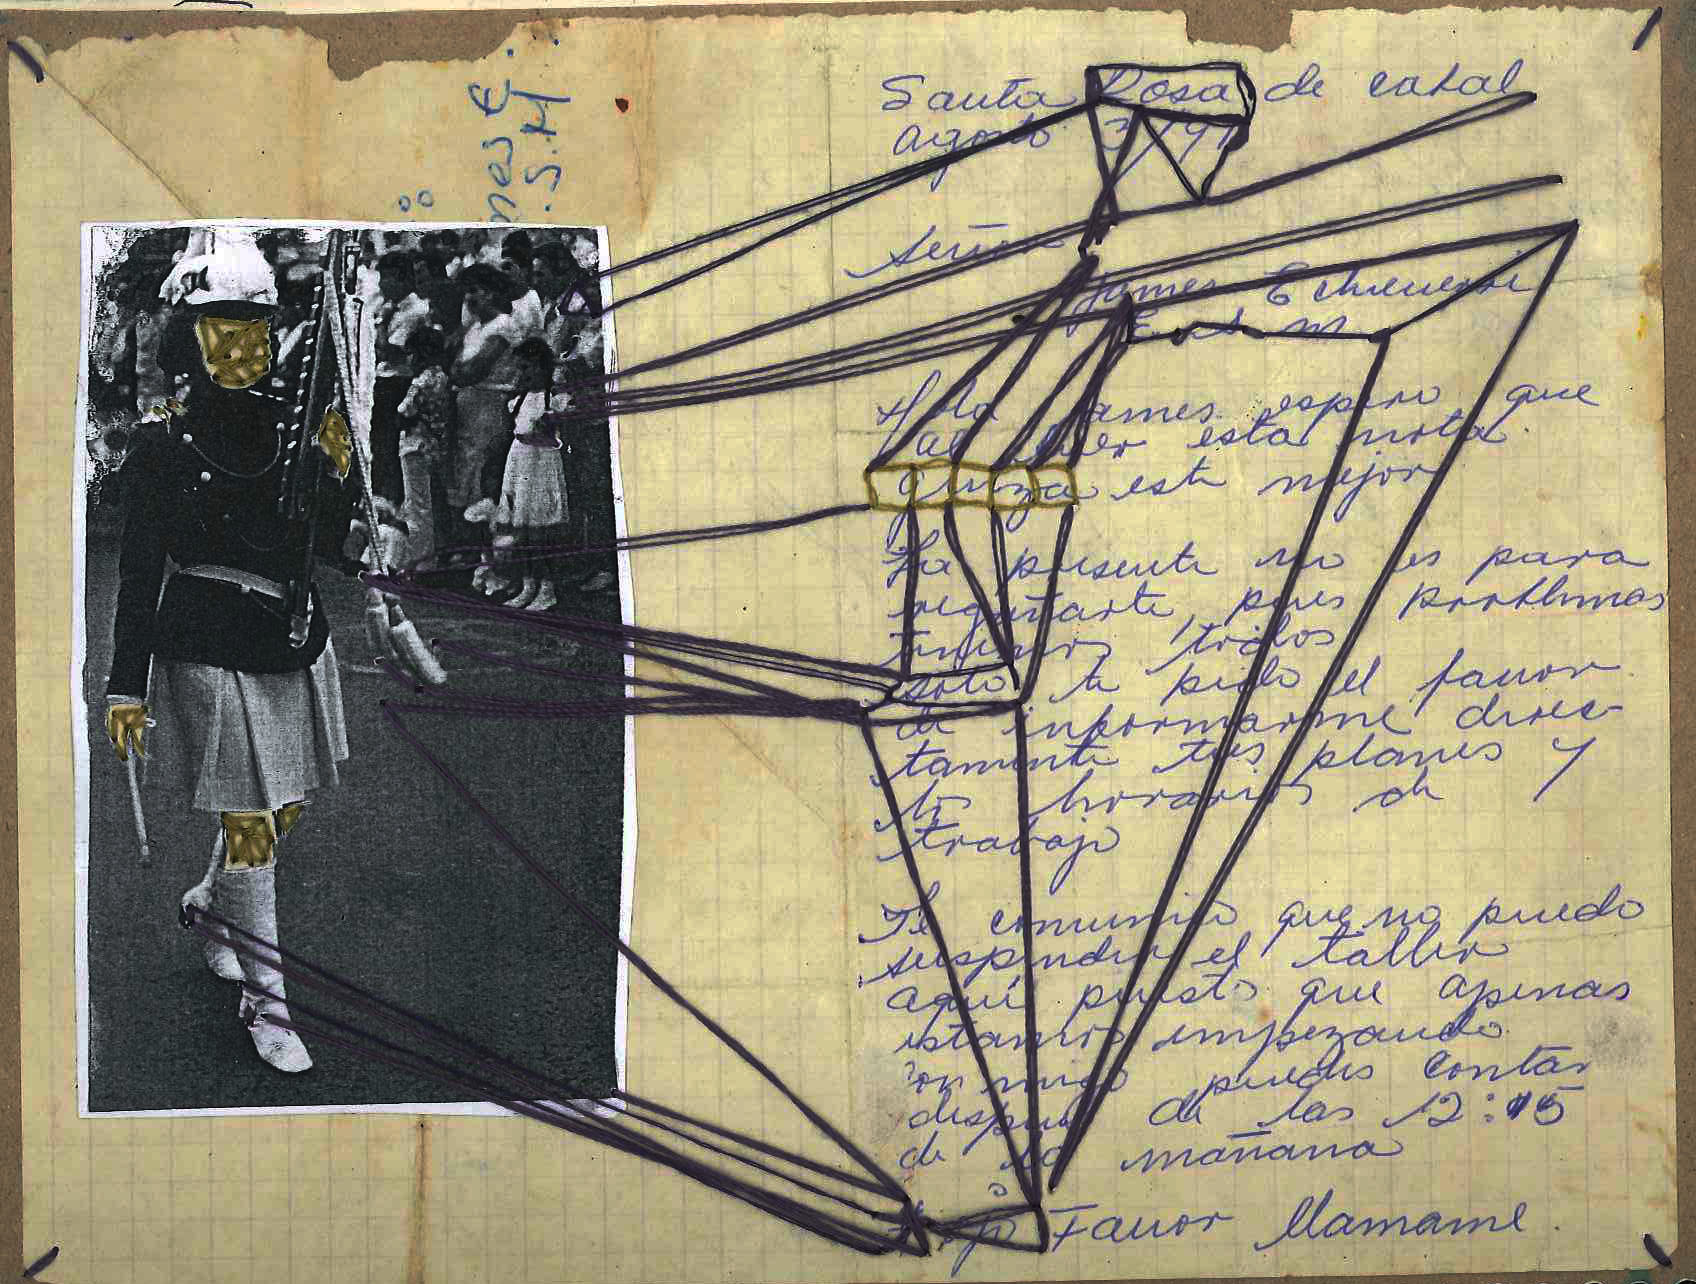 mes E.
S.H
Santa Rosa de cabal
agosto 3/91
Señor
James Echeverri
E. S. M
Hola James espero que
al leer esta nota
gripa este mejor
La presente no es para
regañarte, pues problemas
tenemos todos
solo te pido el favor
de informarme direc-
tamente tus planes y
los horarios de
trabajo
Te comunico que no puedo
suspender el taller
aquí puesto que apenas
estamos empezando
conmigo puedes contar
despues de las 12:15
de la mañana
Favor llamame.